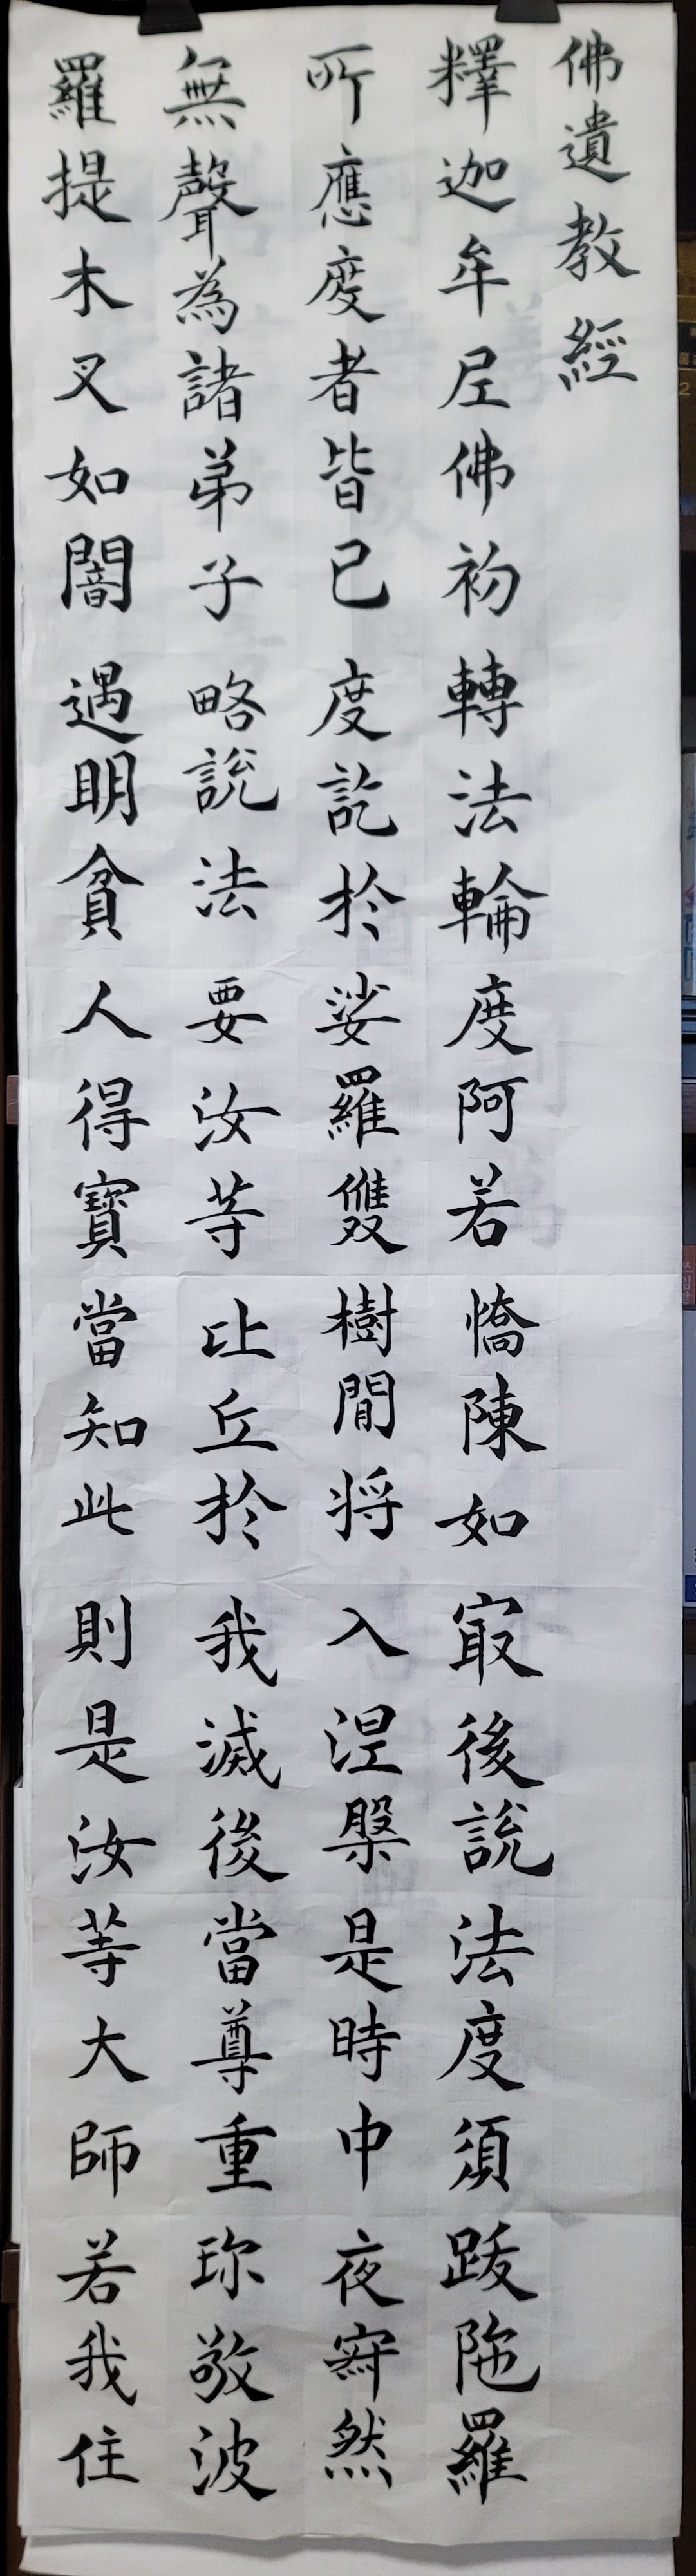 佛遺教經
釋迦牟尼佛初轉法輪度阿若憍陳如寂後說法度須跋陁羅
所應度者皆已度訖於娑羅雙樹間将入涅槃是時中夜寂然
無聲為諸弟子略說法要汝等比丘於我滅後當尊重珎敬波
羅提木叉如闇遇明貧人得寶當知此則是汝等大師若我住